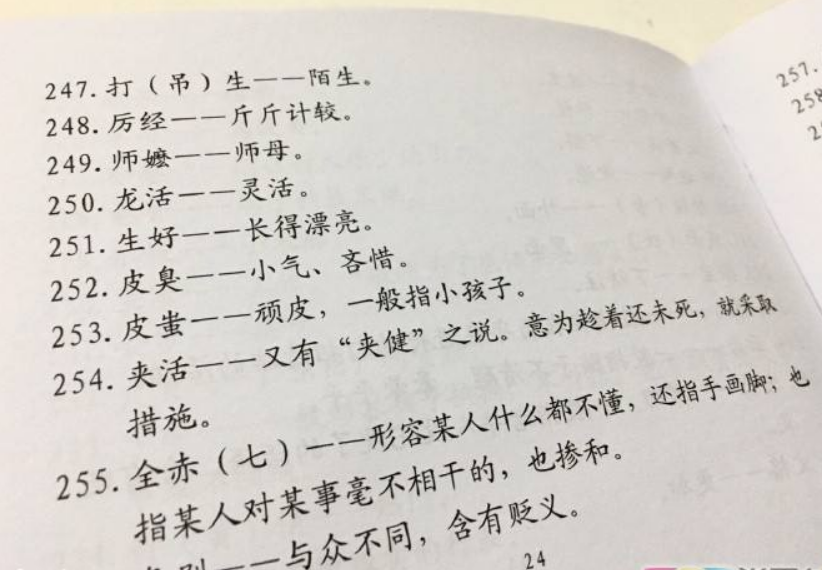 247. 打（吊）生——陌生。
248. 厉经——斤斤计较。
249. 师嬷——师母。
250. 龙活——灵活。
251. 生好——长得漂亮。
252. 皮臭——小气、吝惜。
253. 皮蚩——顽皮，一般指小孩子。
254. 夹活——又有“夹健”之说。意为趁着还未死，就采取
措施。
255. 全赤（七）——形容某人什么都不懂，还指手画脚；也
指某人对某事毫不相干的，也掺和。
——与众不同，含有贬义。
24
257.
258